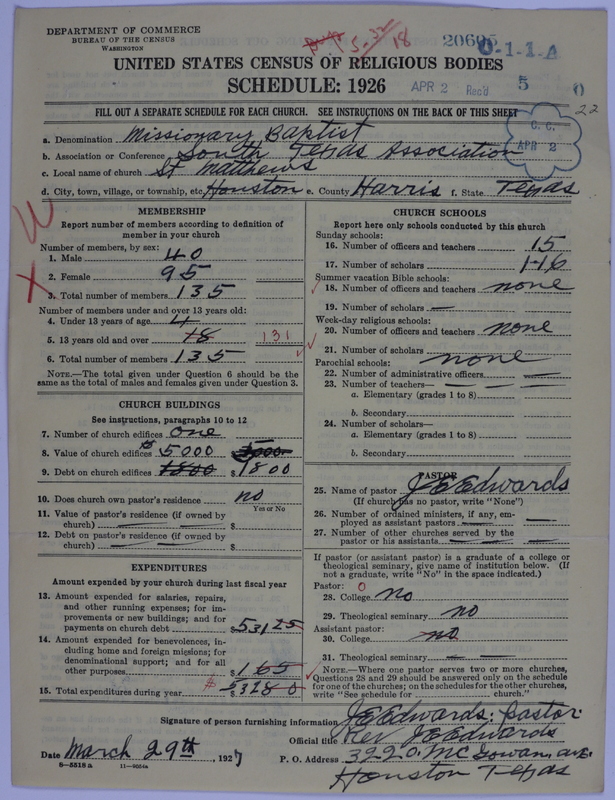 DEPARTMENT OF COMMERCE
BUREAU OF THE CENSUS
WASHINGTON
20695
0-1-1-A
18
UNITED STATES CENSUS OF RELIGIOUS BODIES
SCHEDULE: 1926
APR 2 Rec'd 5 0
FILL OUT A SEPARATE SCHEDULE FOR EACH CHURCH. SEE INSTRUCTIONS ON THE BACK OF THIS SHEET
22
C. C.
APR 2
a. Denomination Missionary Baptist
b. Association or Conference South Texas Association
c. Local name of church St Matthews
d. City, town, village, or township, etc. Houston e. County Harris f. State Texas
MEMBERSHIP
Report number of members according to definition of
member in your church
Number of members, by sex:
1. Male 40
2. Female 95
3. Total number of members 135
Number of members under and over 13 years old:
4. Under 13 years of age 4
5. 13 years old and over 18 131
6. Total number of members 135
NOTE.—The total given under Question 6 should be the
same as the total of males and females given under Question 3.
CHURCH BUILDINGS
See instructions, paragraphs 10 to 12
7. Number of church edifices one
8. Value of church edifices $5000 5000
9. Debt on church edifices 1800 $1800
10. Does church own pastor's residence no
Yes or No
11. Value of pastor's residence (if owned by
church) $
12. Debt on pastor's residence (if owned by
church) $
EXPENDITURES
Amount expended by your church during last fiscal year
13. Amount expended for salaries, repairs,
and other running expenses; for im-
provements or new buildings; and for
payments on church debt $53125
14. Amount expended for benevolences, in-
cluding home and foreign missions; for
denominational support; and for all
other purposes $165
15. Total expenditures during year $
CHURCH SCHOOLS
Report here only schools conducted by this church
Sunday schools:
16. Number of officers and teachers 15
17. Number of scholars 116
Summer vacation Bible schools:
18. Number of officers and teachers none
19. Number of scholars —
Week-day religious schools:
20. Number of officers and teachers none
21. Number of scholars none
Parochial schools:
22. Number of administrative officers —
23. Number of teachers— — — —
a. Elementary (grades 1 to 8)
b. Secondary
24. Number of scholars—
a. Elementary (grades 1 to 8)
b. Secondary
PASTOR
25. Name of pastor J E Edwards
(If church has no pastor, write "None")
26. Number of ordained ministers, if any, em-
ployed as assistant pastors — —
27. Number of other churches served by the
pastor or his assistants — — —
If pastor (or assistant pastor) is a graduate of a college or
theological seminary, give name of institution below. (If
not a graduate, write "No" in the space indicated.)
Pastor: 0
28. College no
29. Theological seminary no
Assistant pastor:
30. College no
31. Theological seminary — —
NOTE.—Where one pastor serves two or more churches,
Questions 28 and 29 should be answered only on the schedule
for one of the churches; on the schedules for the other churches,
write "See schedule for church."
Signature of person furnishing information J E Edwards. pastor
Official title Rev J E Edwards
Date March 29th, 1927 P. O. Address 3220. McGowan, ave
8—5518 a 11—9034a Houston Texas